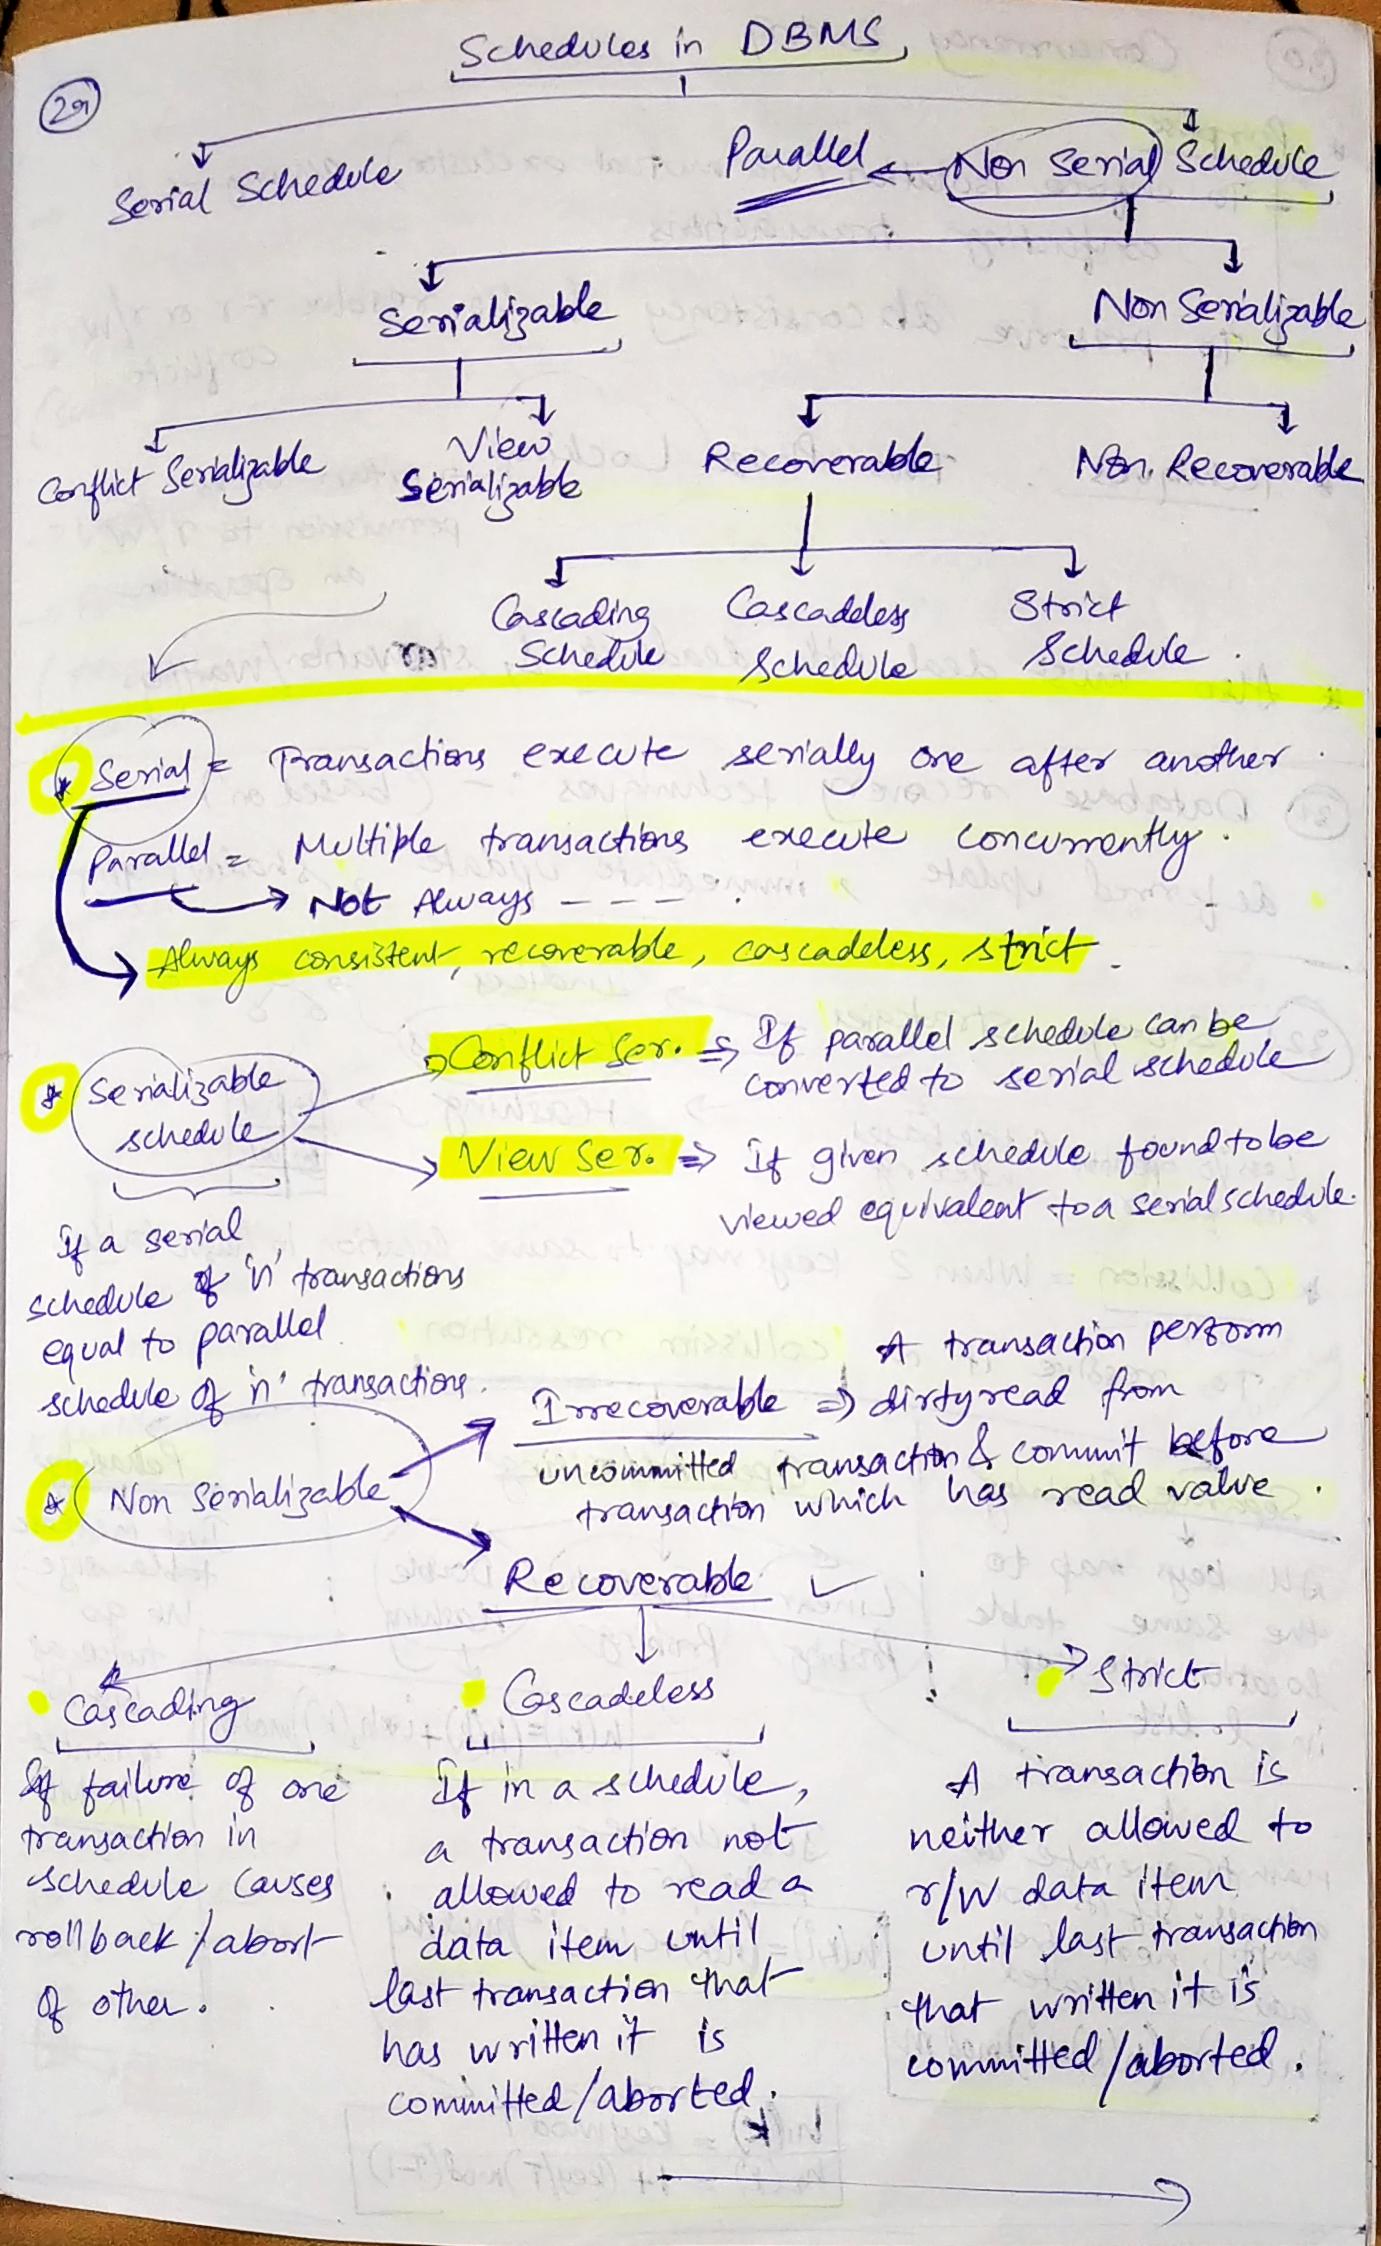 Schedules in DBMS
29
Serial Schedule
Parallel
Non Serial Schedule
Serializable
Non Serializable
Conflict Serializable
View
Serializable
Recoverable
Non. Recoverable
Cascading
Schedule
Cascadeless
Schedule
Strict
Schedule.
* Serial = Transactions execute serially one after another.
Parallel = Multiple transactions execute concurrently.
→ Not Always - - - - .
→ Always consistent, recoverable, cascadeless, strict.
* Serializable
schedule
→ Conflict Ser. ⇒ If parallel schedule can be
converted to serial schedule
→ View Ser. ⇒ if given schedule found to be
viewed equivalent to a serial schedule.
If a serial
schedule of 'n' transactions
equal to parallel
schedule of 'n' transactions.
* Non Serializable
Irrecoverable ⇒ A transaction perform
dirty read from
uncommitted transaction & commit before
transaction which has read value.
Recoverable ✓
Cascading
If failure of one
transaction in
schedule causes
rollback/abort
of other.
Cascadeless
If in a schedule,
a transaction not
allowed to read a
data item until
last transaction that
has written it is
committed/aborted.
Strict
A transaction is
neither allowed to
r/w data item
until last transaction
that written it is
committed/aborted.